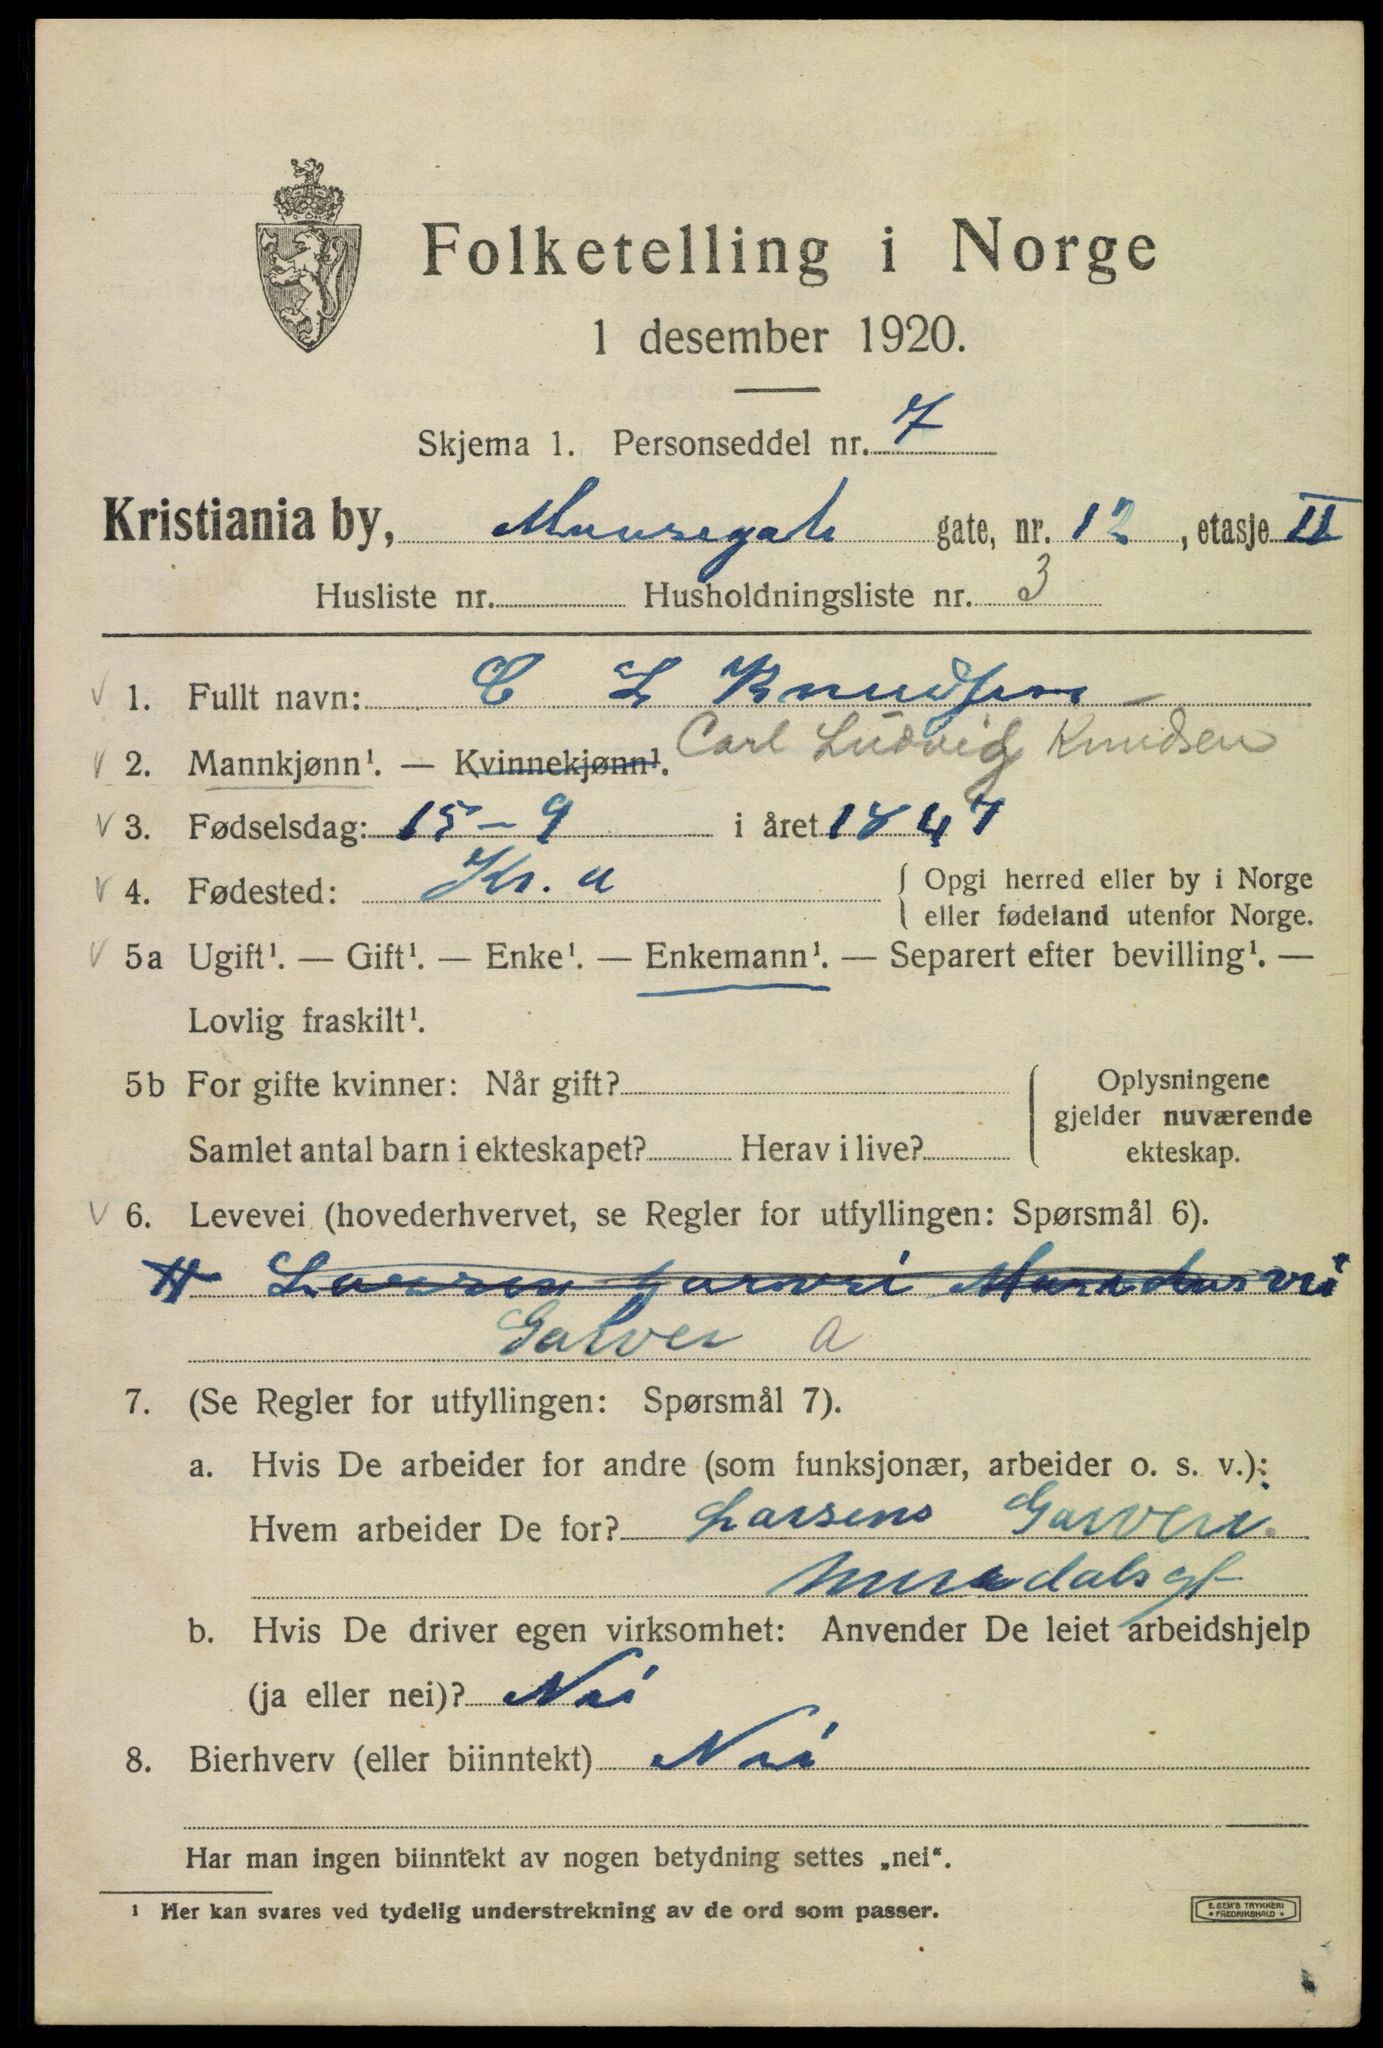 Folketelling i Norge
1 desember 1920.
Skjema 1. Personseddel nr. 7
Kristiania by, gate, nr. 12, etasje II
Husliste nr. Husholdningsliste nr. 3
1. Fullt navn: C L Knudsen
Carl Ludvig Knudsen
2. Mannkjønn¹. — Kvinnekjønn¹.
3. Fødselsdag: 15-9 i året 1847
4. Fødested: Kr.a { Opgi herred eller by i Norge
eller fødeland utenfor Norge.
5a Ugift¹. — Gift¹. — Enke¹. — Enkemann¹. — Separert efter bevilling¹. —
Lovlig fraskilt¹.
5b For gifte kvinner: Når gift? { Oplysningene
gjelder nuværende
Samlet antal barn i ekteskapet? Herav i live? ekteskap.
6. Levevei (hovederhvervet, se Regler for utfyllingen: Spørsmål 6).
Garver a
7. (Se Regler for utfyllingen: Spørsmål 7).
a. Hvis De arbeider for andre (som funksjonær, arbeider o. s. v.):
Hvem arbeider De for? Larsens Garveri
b. Hvis De driver egen virksomhet: Anvender De leiet arbeidshjelp
(ja eller nei)? Nei
8. Bierhverv (eller biinntekt) Nei
Har man ingen biinntekt av nogen betydning settes „nei“.
¹ Her kan svares ved tydelig understrekning av de ord som passer.
E. SEM'S TRYKKERI
FREDRIKSHALD